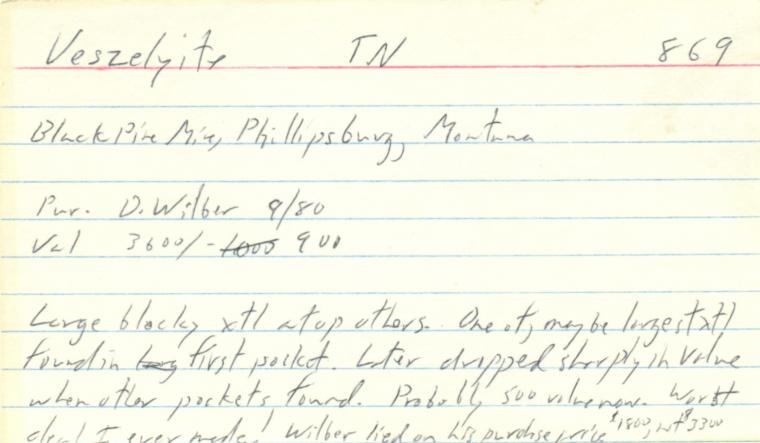 Veszelyite TN 869
Black Pine Mine, Phillipsburg, Montana
Pur. D. Wilber 9/80
Val 3600/- 1000 900
Large blocky xtl atop others. One of, maybe largest xtl
found in first pocket. Later dropped sharply in value
when other pockets found. Probably 500 value now. Worst
deal I ever made! Wilber lied on his purchase price $1800, not $3300